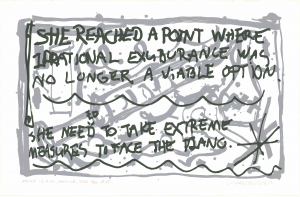 SHE REACHED A POINT WHERE
IRRATIONAL EXUBURANCE WAS
NO LONGER A VIABLE OPTION
SO
SHE NEED TO TAKE EXTREME
MEASURES TO FACE THE